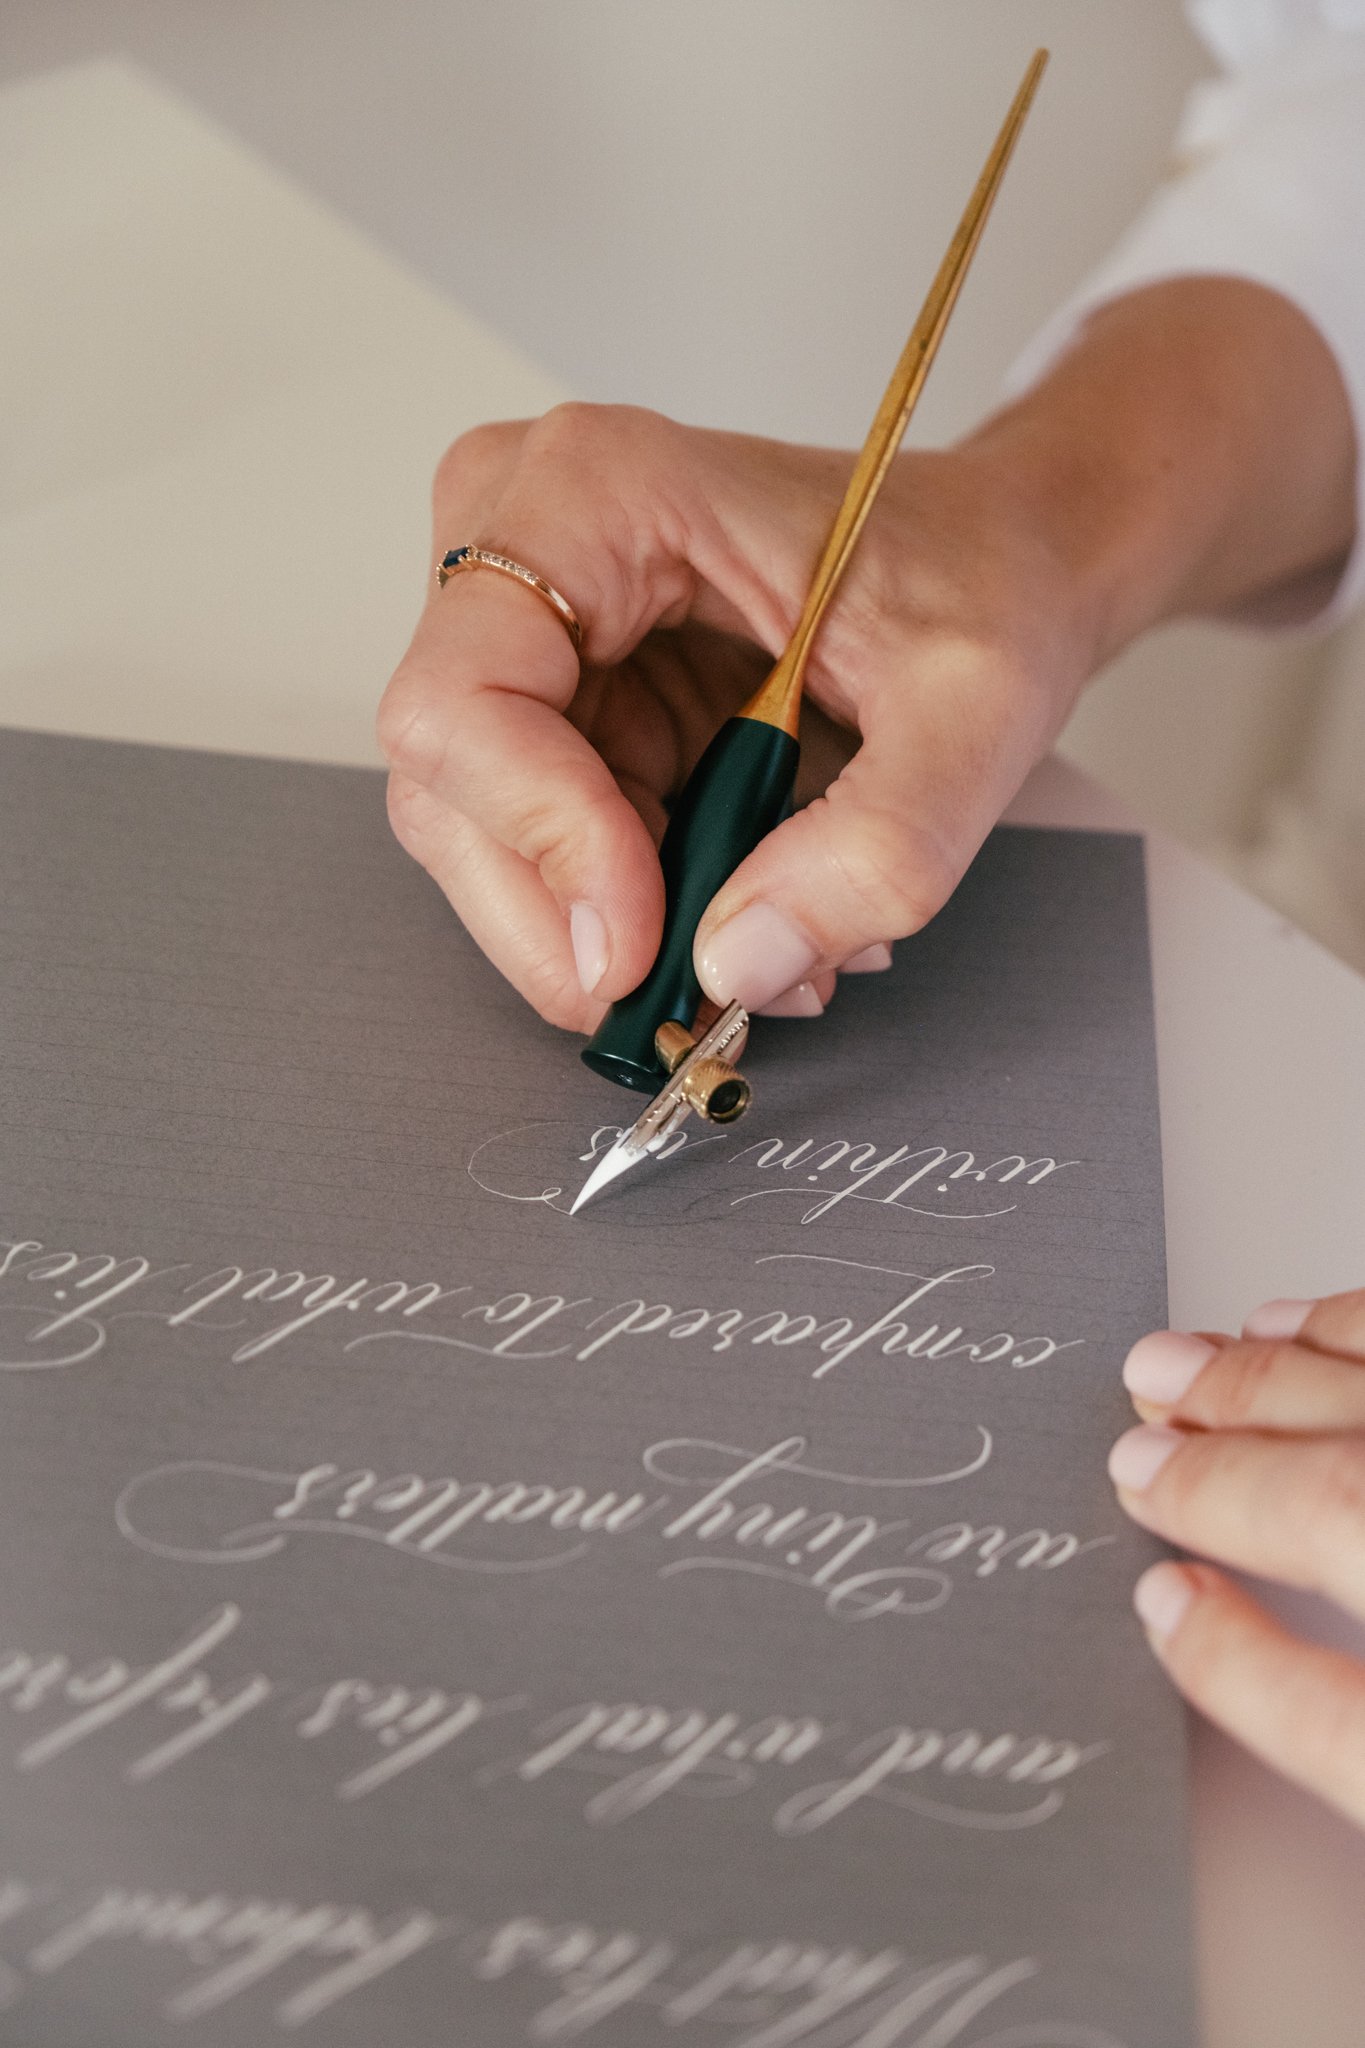 What lies behind
and what lies before
are tiny matters
compared to what lies
within us
JAPAN